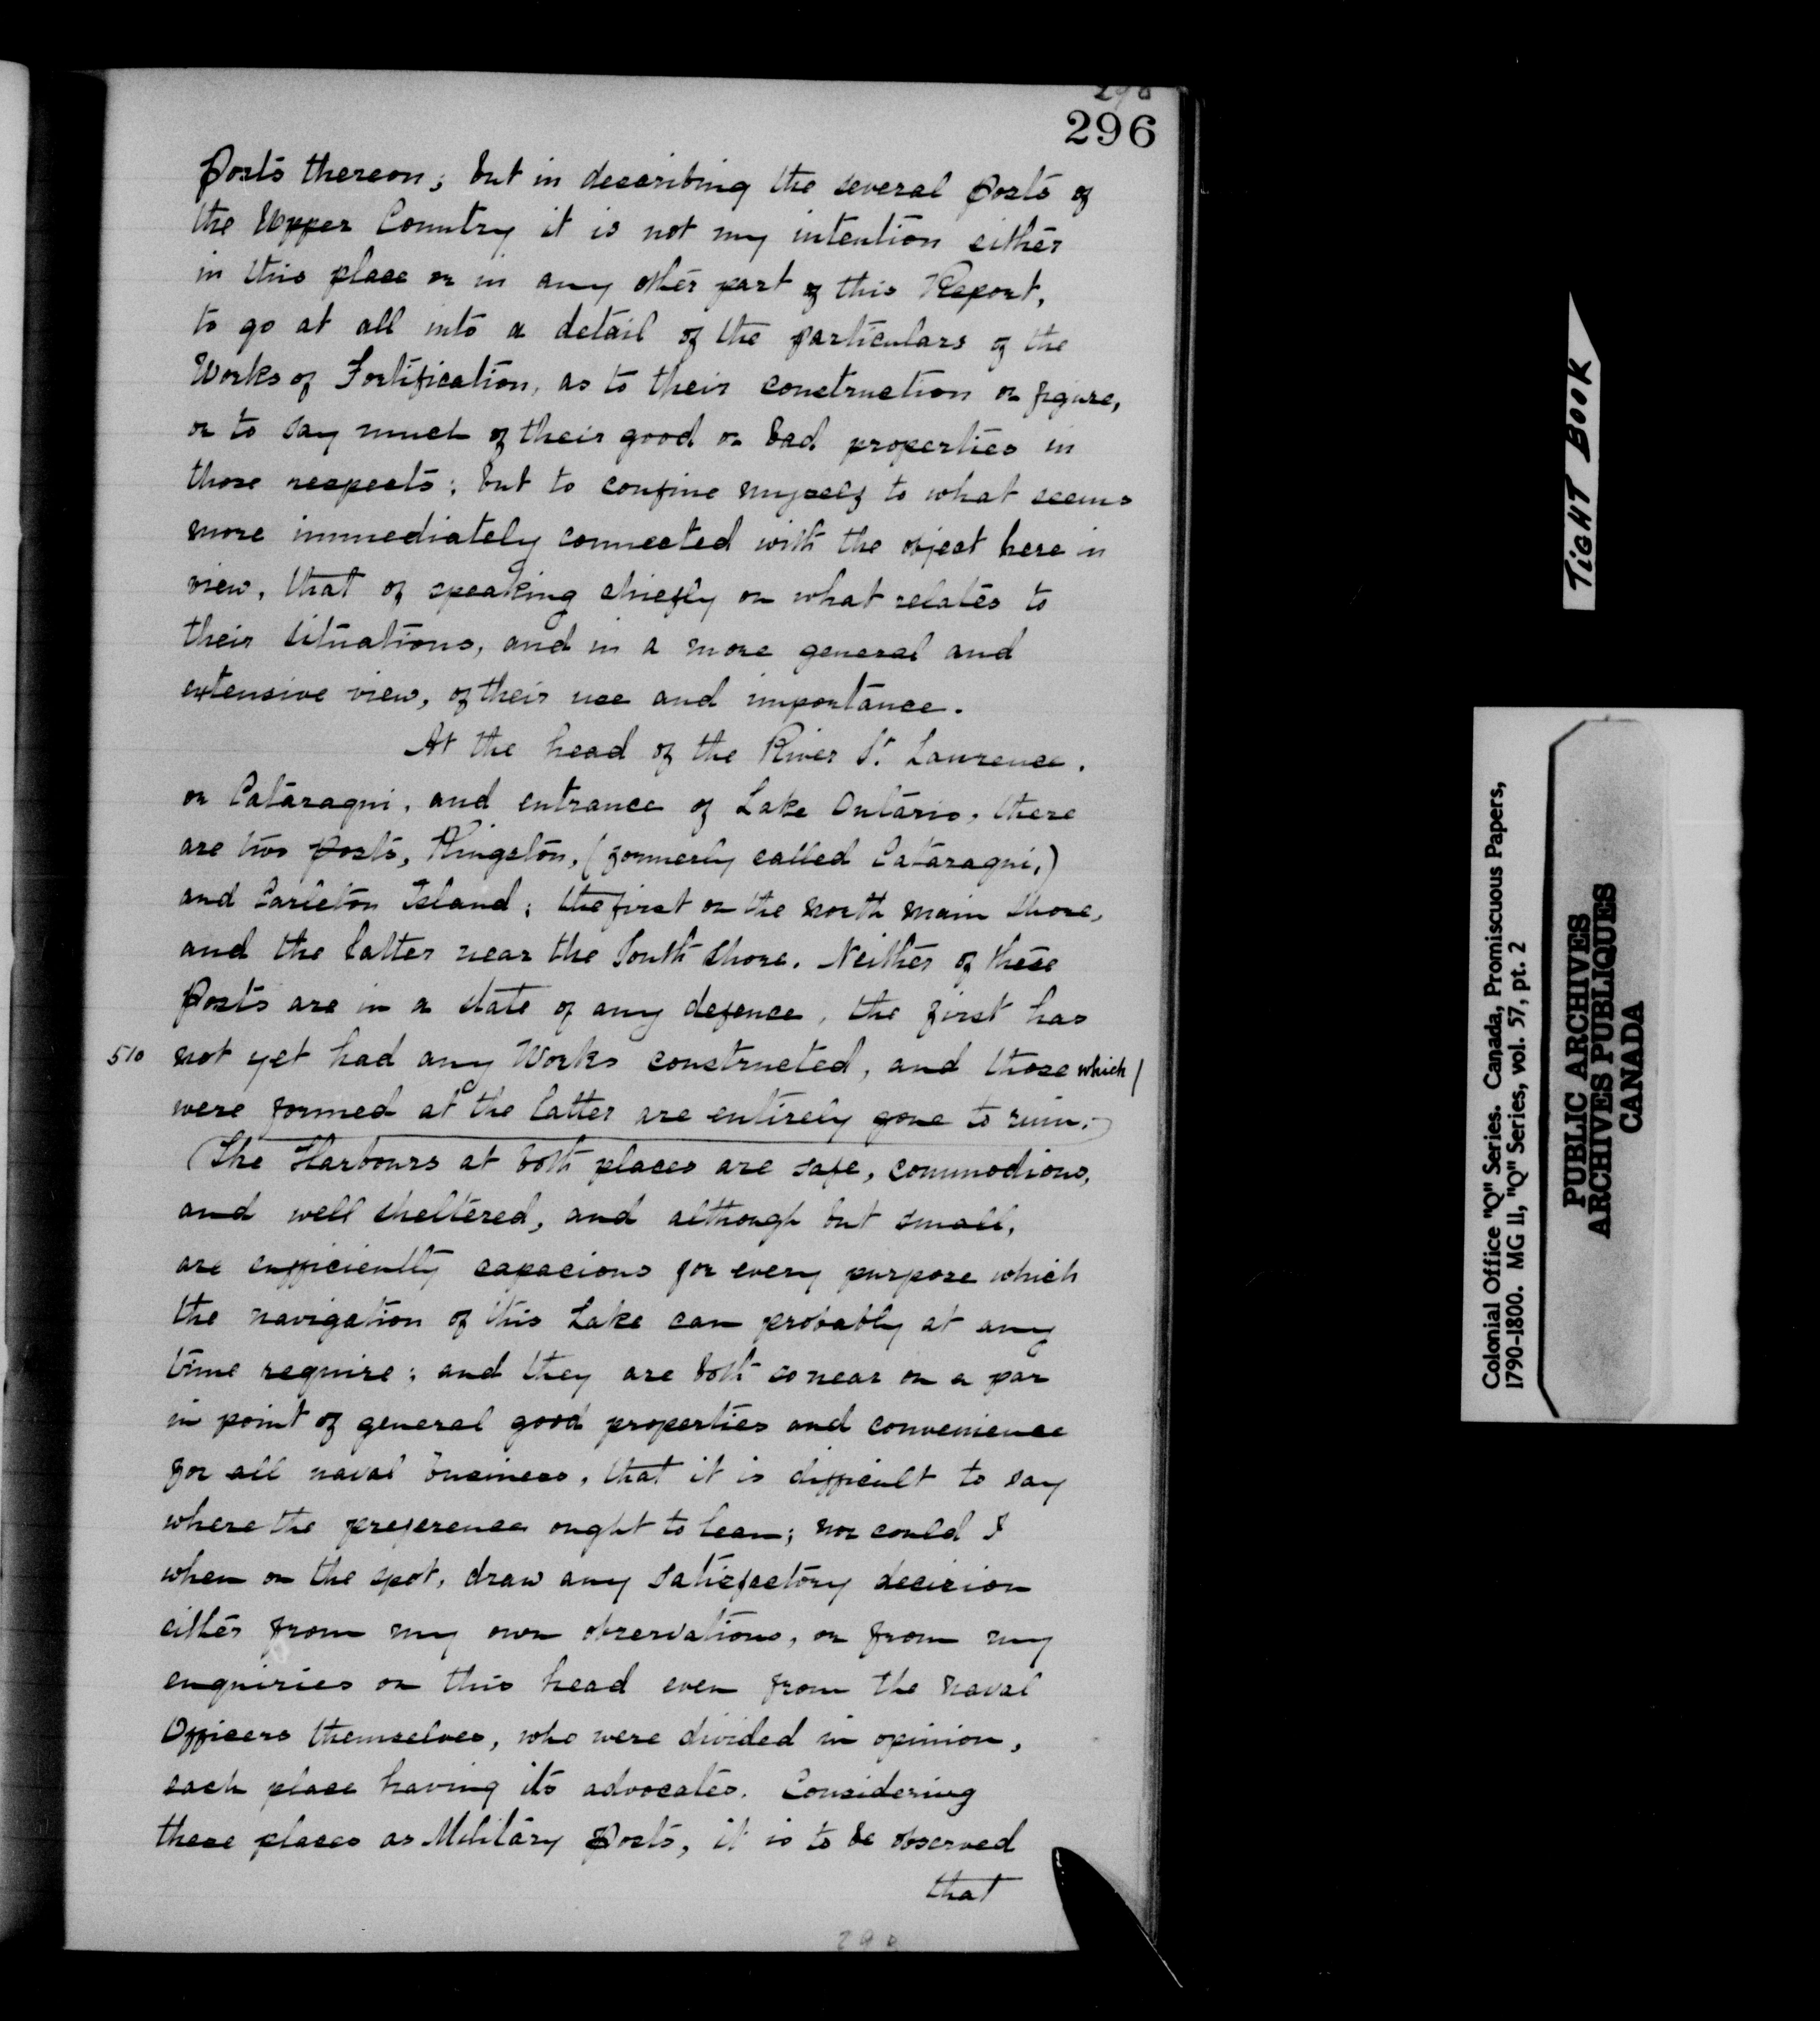 296
Posts thereon; but in describing the several Posts of
the Upper Country it is not my intention either
in this place or in any other part of this Report,
to go at all into a detail of the particulars of the
Works of Fortification, as to their construction or figure,
or to say much of their good or bad properties in
those respects; but to confine myself to what seems
more immediately connected with the object here in
view, that of speaking chiefly on what relates to
their situations, and in a more general and
extensive view, of their use and importance.
At the head of the River St. Lawrence,
or Cataraqui, and entrance of Lake Ontario, there
are two Posts, Kingston, (formerly called Cataraqui,)
and Carleton Island; the first on the north main shore,
and the latter near the South shore. Neither of these
Posts are in a state of any defence, the first has
510 not yet had any Works constructed, and those which
were formed at the latter are entirely gone to ruin.
The Harbours at both places are safe, commodious,
and well sheltered, and although but small,
are sufficiently capacious for every purpose which
the navigation of this Lake can probably at any
time require; and they are both so near on a par
in point of general good properties and convenience
for all naval business, that it is difficult to say
where the preference ought to lean; nor could I
when on the spot, draw any satisfactory decision
either from my own observations, or from my
enquiries on this head even from the naval
Officers themselves, who were divided in opinion,
each place having its advocates. Considering
these places as Military Posts, it is to be observed
that
TIGHT BOOK
Colonial Office "Q" Series. Canada, Promiscuous Papers,
1790-1800. MG 11, "Q" Series, vol. 57, pt. 2
PUBLIC ARCHIVES
ARCHIVES PUBLIQUES
CANADA